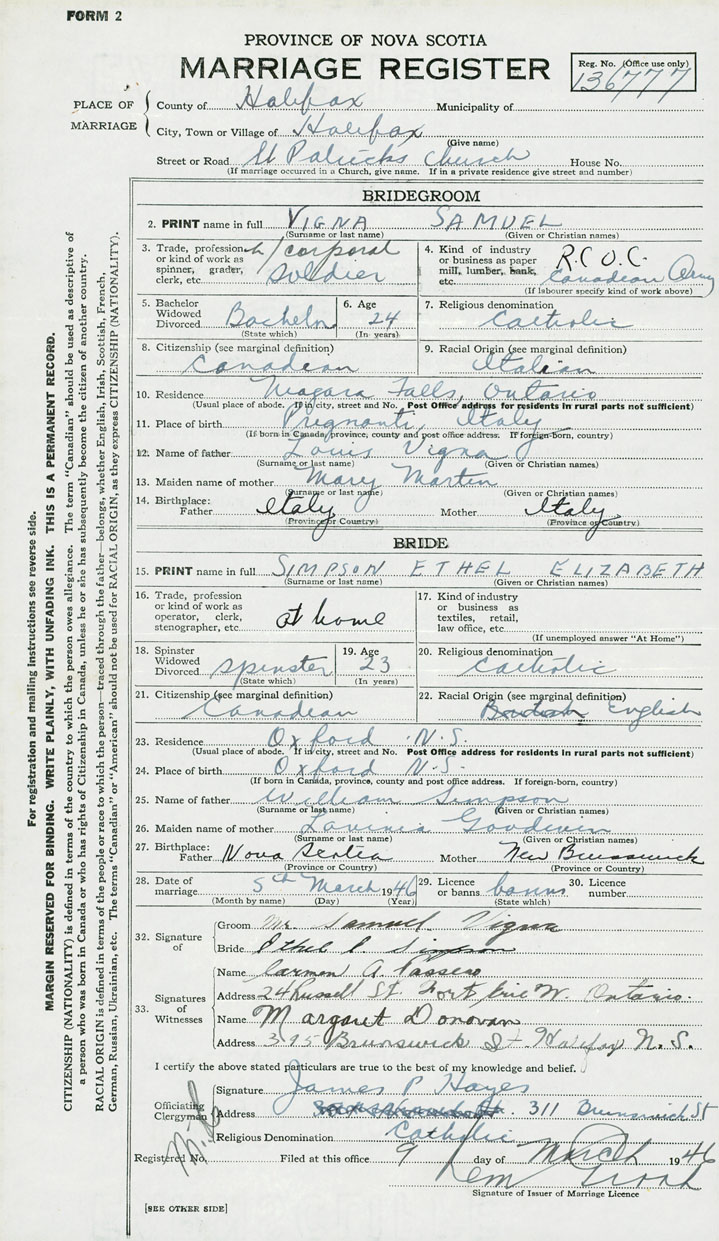 FORM 2
PROVINCE OF NOVA SCOTIA
MARRIAGE REGISTER
Reg. No. (Office use only)
136777
PLACE OF MARRIAGE
County of Halifax Municipality of
City, Town or Village of Halifax
(Give name)
Street or Road St Patricks Church House No.
(If marriage occurred in a Church, give name. If in a private residence give street and number)
BRIDEGROOM
2. PRINT name in full VIGNA SAMUEL
(Surname or last name) (Given or Christian names)
3. Trade, profession or kind of work as spinner, grader, clerk, etc. L/corporal soldier
4. Kind of industry or business as paper mill, lumber, bank, etc. R.C.O.C. Canadian Army
(If labourer specify kind of work above)
5. Bachelor Widowed Divorced Bachelor
(State which)
6. Age 24
(In years)
7. Religious denomination Catholic
8. Citizenship (see marginal definition) Canadian
9. Racial Origin (see marginal definition) Italian
10. Residence Niagara Falls, Ontario
(Usual place of abode. If in city, street and No. Post Office address for residents in rural parts not sufficient)
11. Place of birth Italy
(If born in Canada, province, county and post office address. If foreign-born, country)
12. Name of father Louis Vigna
(Surname or last name) (Given or Christian names)
13. Maiden name of mother Mary Martin
(Surname or last name) (Given or Christian names)
14. Birthplace: Father Italy Mother Italy
(Province or Country) (Province or Country)
BRIDE
15. PRINT name in full SIMPSON ETHEL ELIZABETH
(Surname or last name) (Given or Christian names)
16. Trade, profession or kind of work as operator, clerk, stenographer, etc. at home
17. Kind of industry or business as textiles, retail, law office, etc.
(If unemployed answer "At Home")
18. Spinster Widowed Divorced spinster
(State which)
19. Age 23
(In years)
20. Religious denomination Catholic
21. Citizenship (see marginal definition) Canadian
22. Racial Origin (see marginal definition) British English
23. Residence Oxford N.S.
(Usual place of abode. If in city, street and No. Post Office address for residents in rural parts not sufficient)
24. Place of birth Oxford N.S.
(If born in Canada, province, county and post office address. If foreign-born, country)
25. Name of father William Simpson
(Surname or last name) (Given or Christian names)
26. Maiden name of mother Lavinia Goodwin
(Surname or last name) (Given or Christian names)
27. Birthplace: Father Nova Scotia Mother New Brunswick
(Province or Country) (Province or Country)
28. Date of marriage 5th March 1946
(Month by name) (Day) (Year)
29. Licence or banns banns
(State which)
30. Licence number
32. Signature of
Groom Mr. Samuel Vigna
Bride Ethel E Simpson
33. Signatures of Witnesses
Name Carmen A. Passero
Address 24 Russell St. Fort Erie W. Ontario.
Name Margaret Donovan
Address 395 Brunswick St Halifax N.S.
I certify the above stated particulars are true to the best of my knowledge and belief.
Officiating Clergyman
Signature James P Hayes
Address 311 Brunswick St
Religious Denomination Catholic
Registered No. Filed at this office 9 day of March 1946
Signature of Issuer of Marriage Licence
[SEE OTHER SIDE]
For registration and mailing instructions see reverse side.
MARGIN RESERVED FOR BINDING. WRITE PLAINLY, WITH UNFADING INK. THIS IS A PERMANENT RECORD.
CITIZENSHIP (NATIONALITY) is defined in terms of the country to which the person owes allegiance. The term "Canadian" should be used as descriptive of
a person who was born in Canada or who has rights of Citizenship in Canada, unless he or she has subsequently become the citizen of another country.
RACIAL ORIGIN is defined in terms of the people or race to which the person—traced through the father—belongs, whether English, Irish, Scottish, French,
German, Russian, Ukrainian, etc. The terms "Canadian" or "American" should not be used for RACIAL ORIGIN, as they express CITIZENSHIP (NATIONALITY).